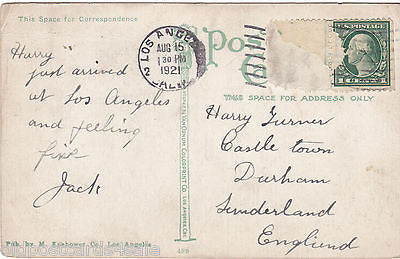 This Space for Correspondence
Post
LOS ANGELES
AUG 15
30 PM
1921
CALIF.
2
1 CENT 1
THIS SPACE FOR ADDRESS ONLY
Harry
just arrived
at Los Angeles
and feeling
fine
Jack
Harry Turner
Castle town
Durham
Sunderland
England
Pub. by M. Kashower Co., Los Angeles
oldpostcards4sale